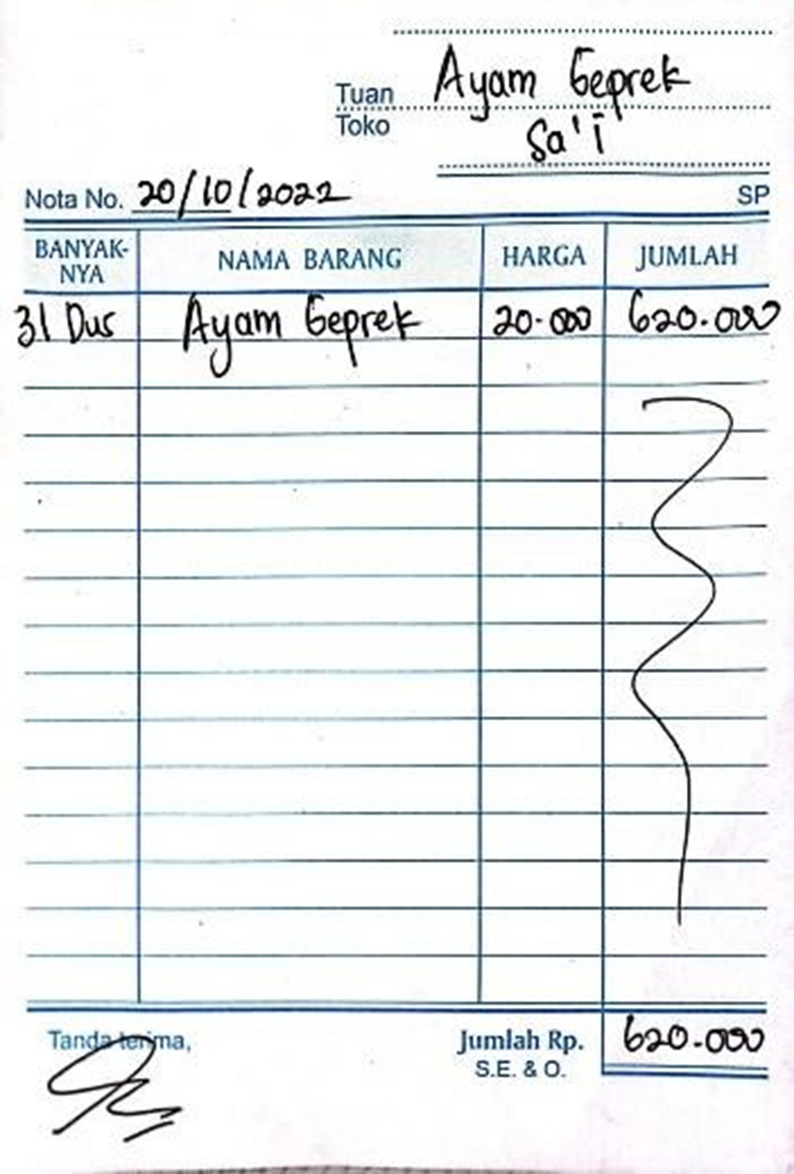 Tuan Ayam Geprek
Toko Sa'i
Nota No. 20/10/2022 SP
BANYAK-NYA NAMA BARANG HARGA JUMLAH
31 Dus Ayam Geprek 20.000 620.000
Tanda terima, Jumlah Rp. 620.000
S.E. & O.